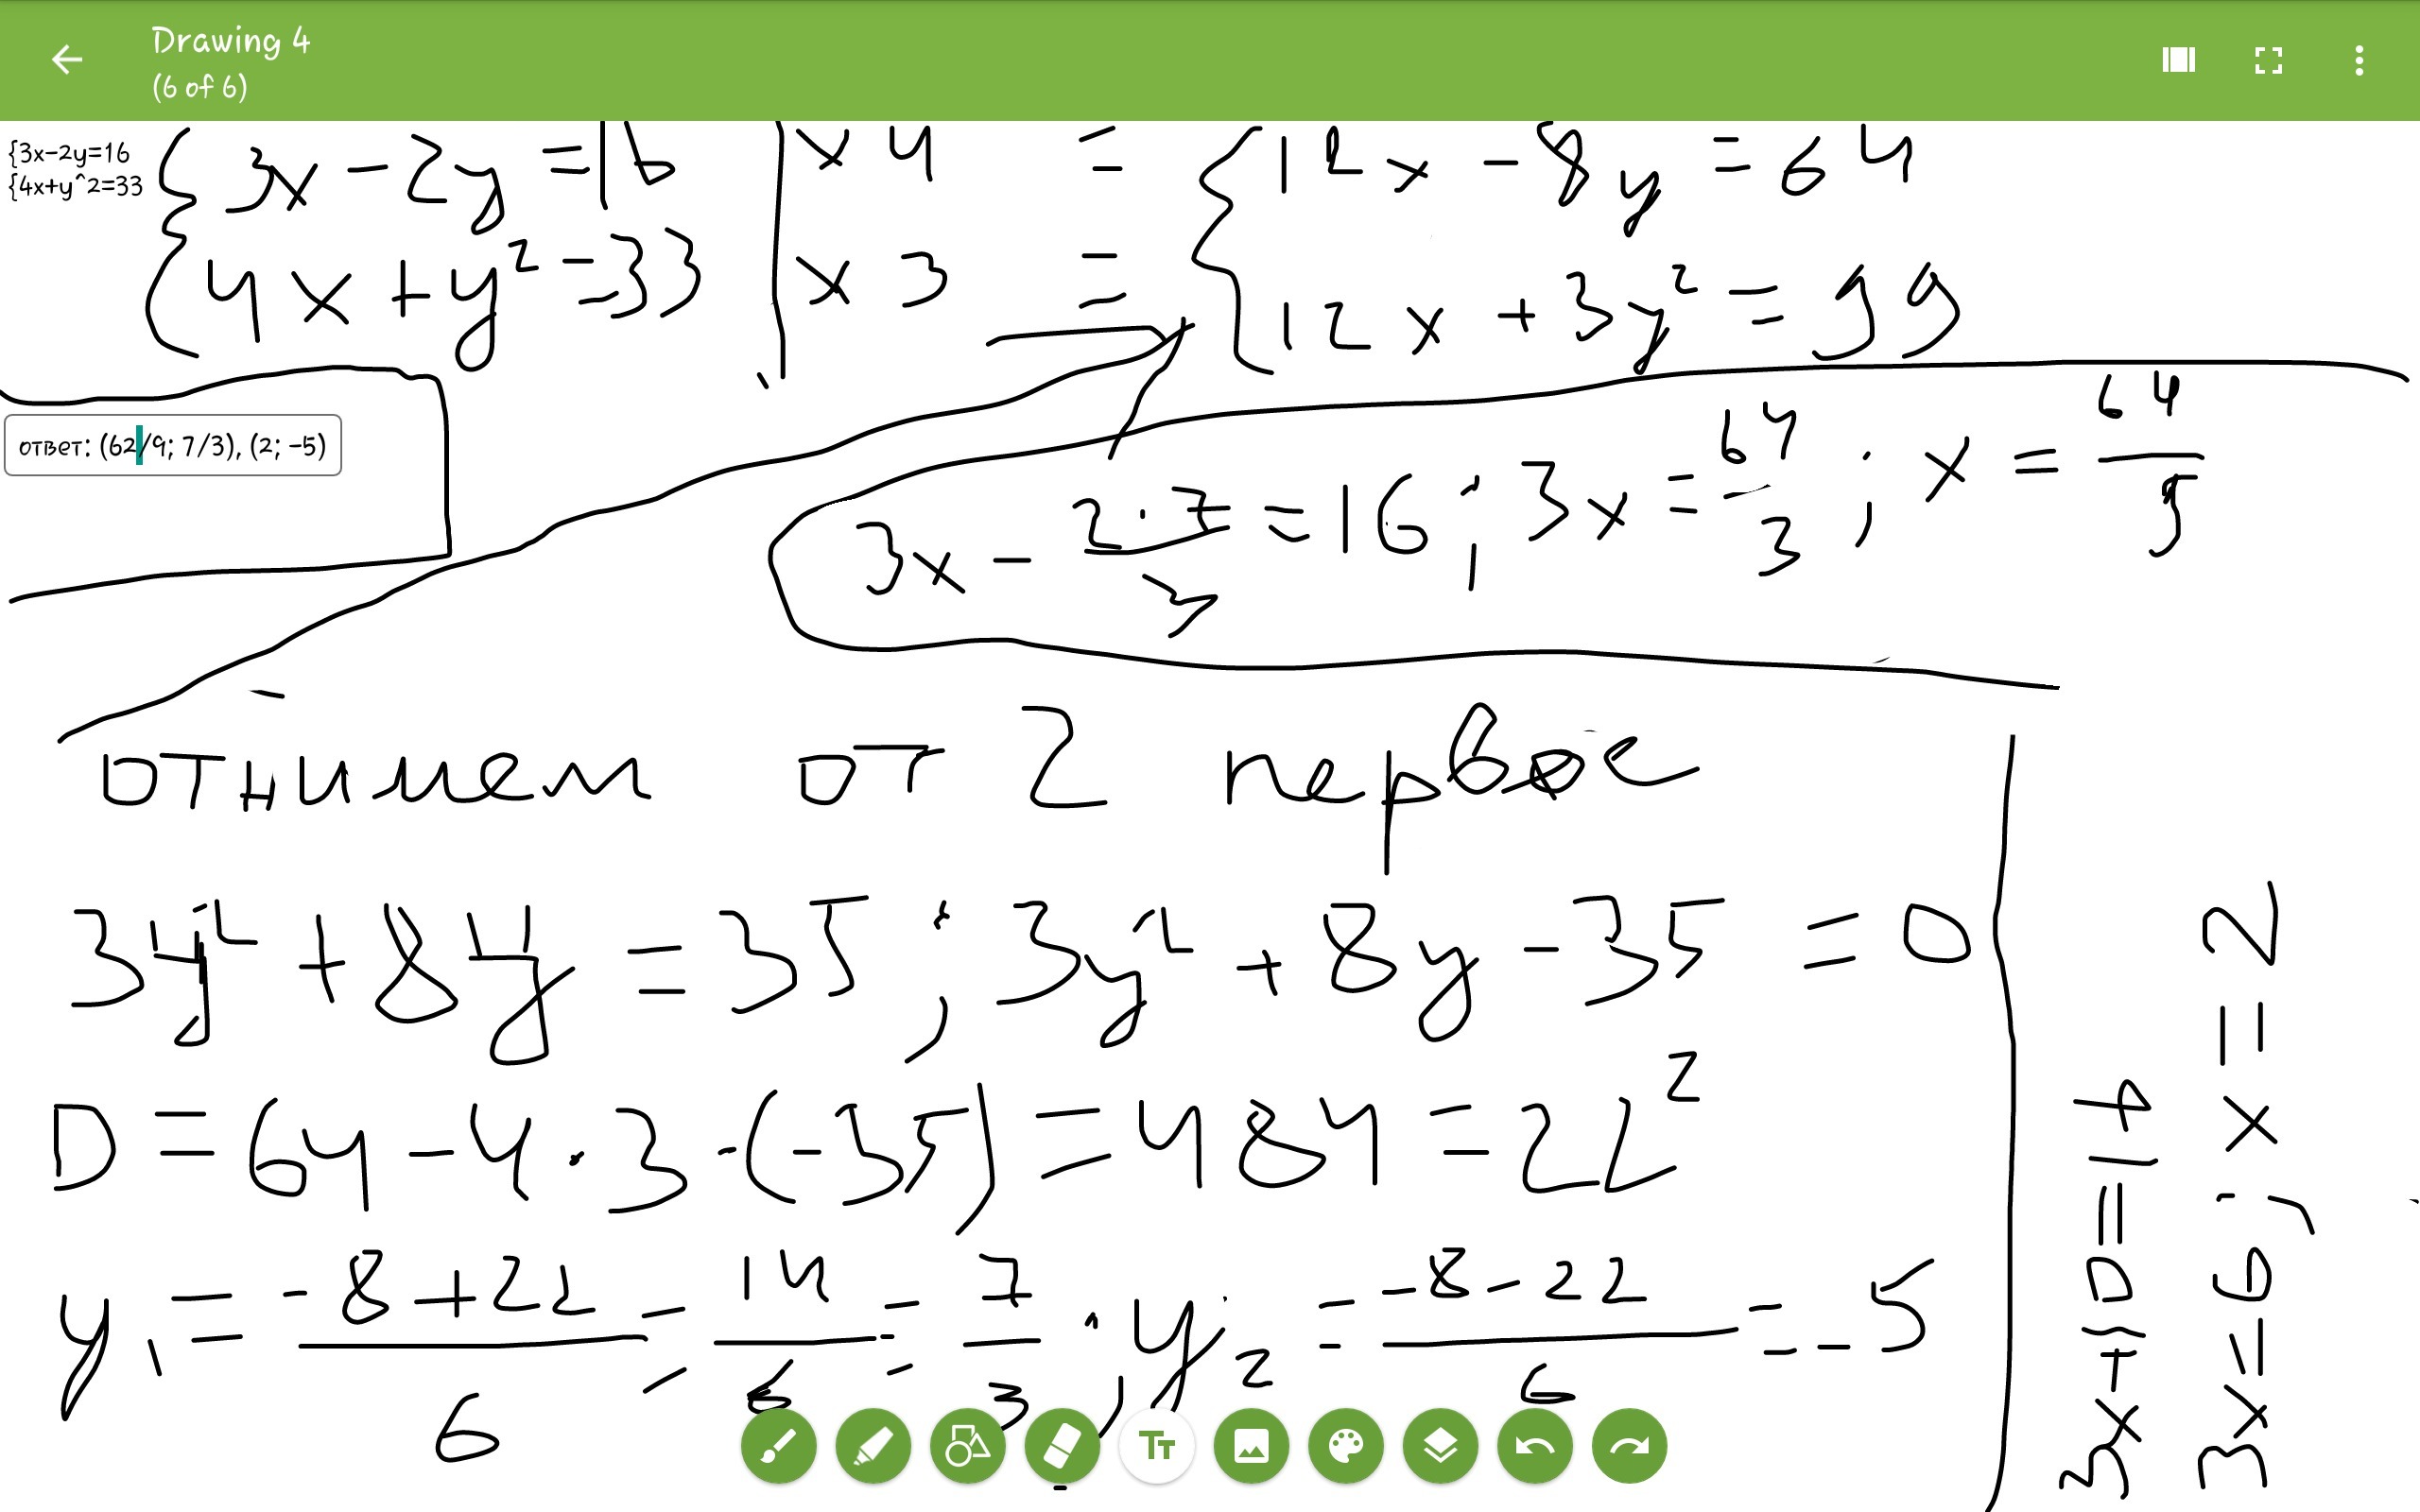 Drawing 4
(6 of 6)
{3x-2y=16
{4x+y^2=33
{ 3x - 2y = 16 | x 4 = { 12x - 8y = 64
{ 4x + y² = 33 | x 3 = { 12x + 3y² = 99
ответ: (62/9; 7/3), (2; -5)
3x - 2·7/3 = 16; 3x = 64/3; x = 64/9
отнимем от 2 первое
3y² + 8y = 35; 3y² + 8y - 35 = 0
D = 64 - 4·3·(-35) = 484 = 22²
y₁ = -8+22/6 = 14/6 = 7/3; y₂ = -8-22/6 = -5
3x+10=16
3x=6; x=2